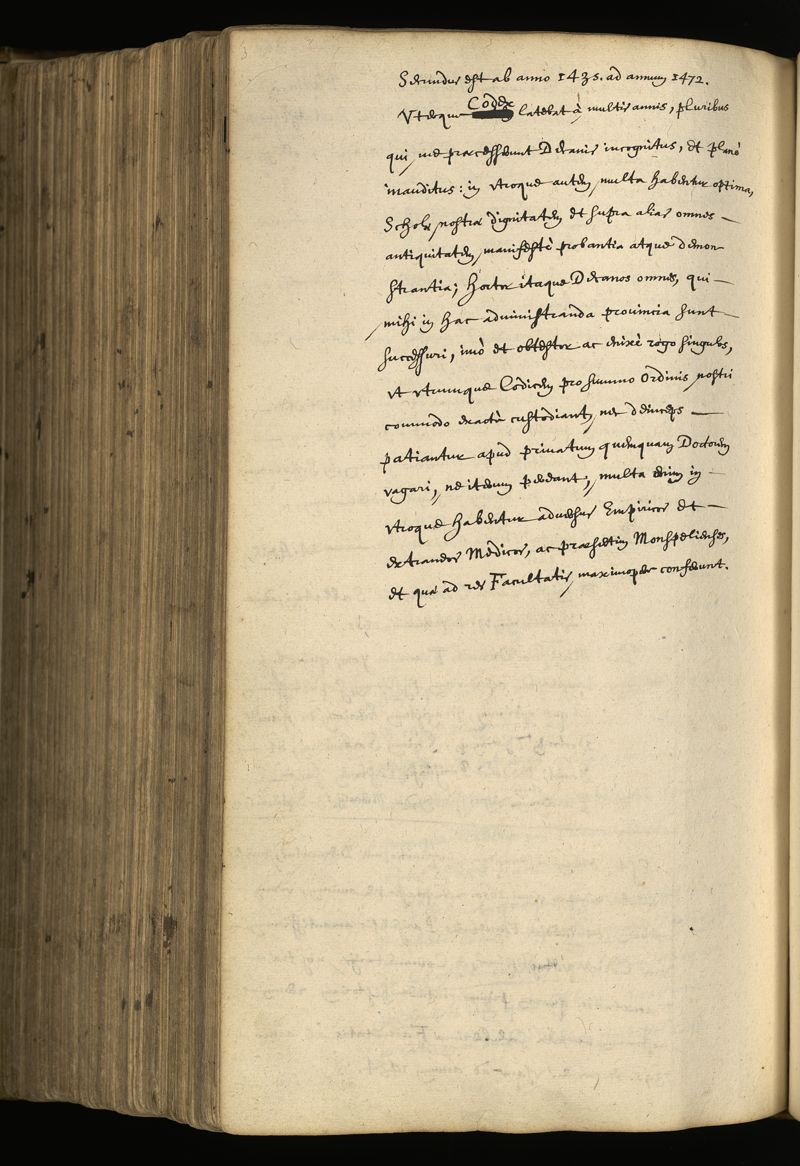 Secundus est ab anno 1435. ad annum 1472.
Vterque Codex latebat à multis annis, pluribus
qui me præcesserunt Decanis incognitus, et planè
inauditus: in vtroque autem multa habentur optima,
Scholæ nostræ dignitatem et supra alias omnes
antiquitatem manifestè probantia atque demon-
strantia; hortor itaque Decanos omnes, qui
mihi in hac administranda prouincia sunt
successuri, imò et obtestor ac enixè rogo singulos,
vt vtrumque Codicem pro summo Ordinis nostri
commodo exactè custodiant, nec deinceps
patiantur apud priuatum quemquam Doctorem
vagari, ne iterum pereant; multa enim in
vtroque habentur aduersus Empiricos et
extraneos Medicos, ac præsertim Monspelienses,
et quæ ad res Facultatis maximopere conferunt.